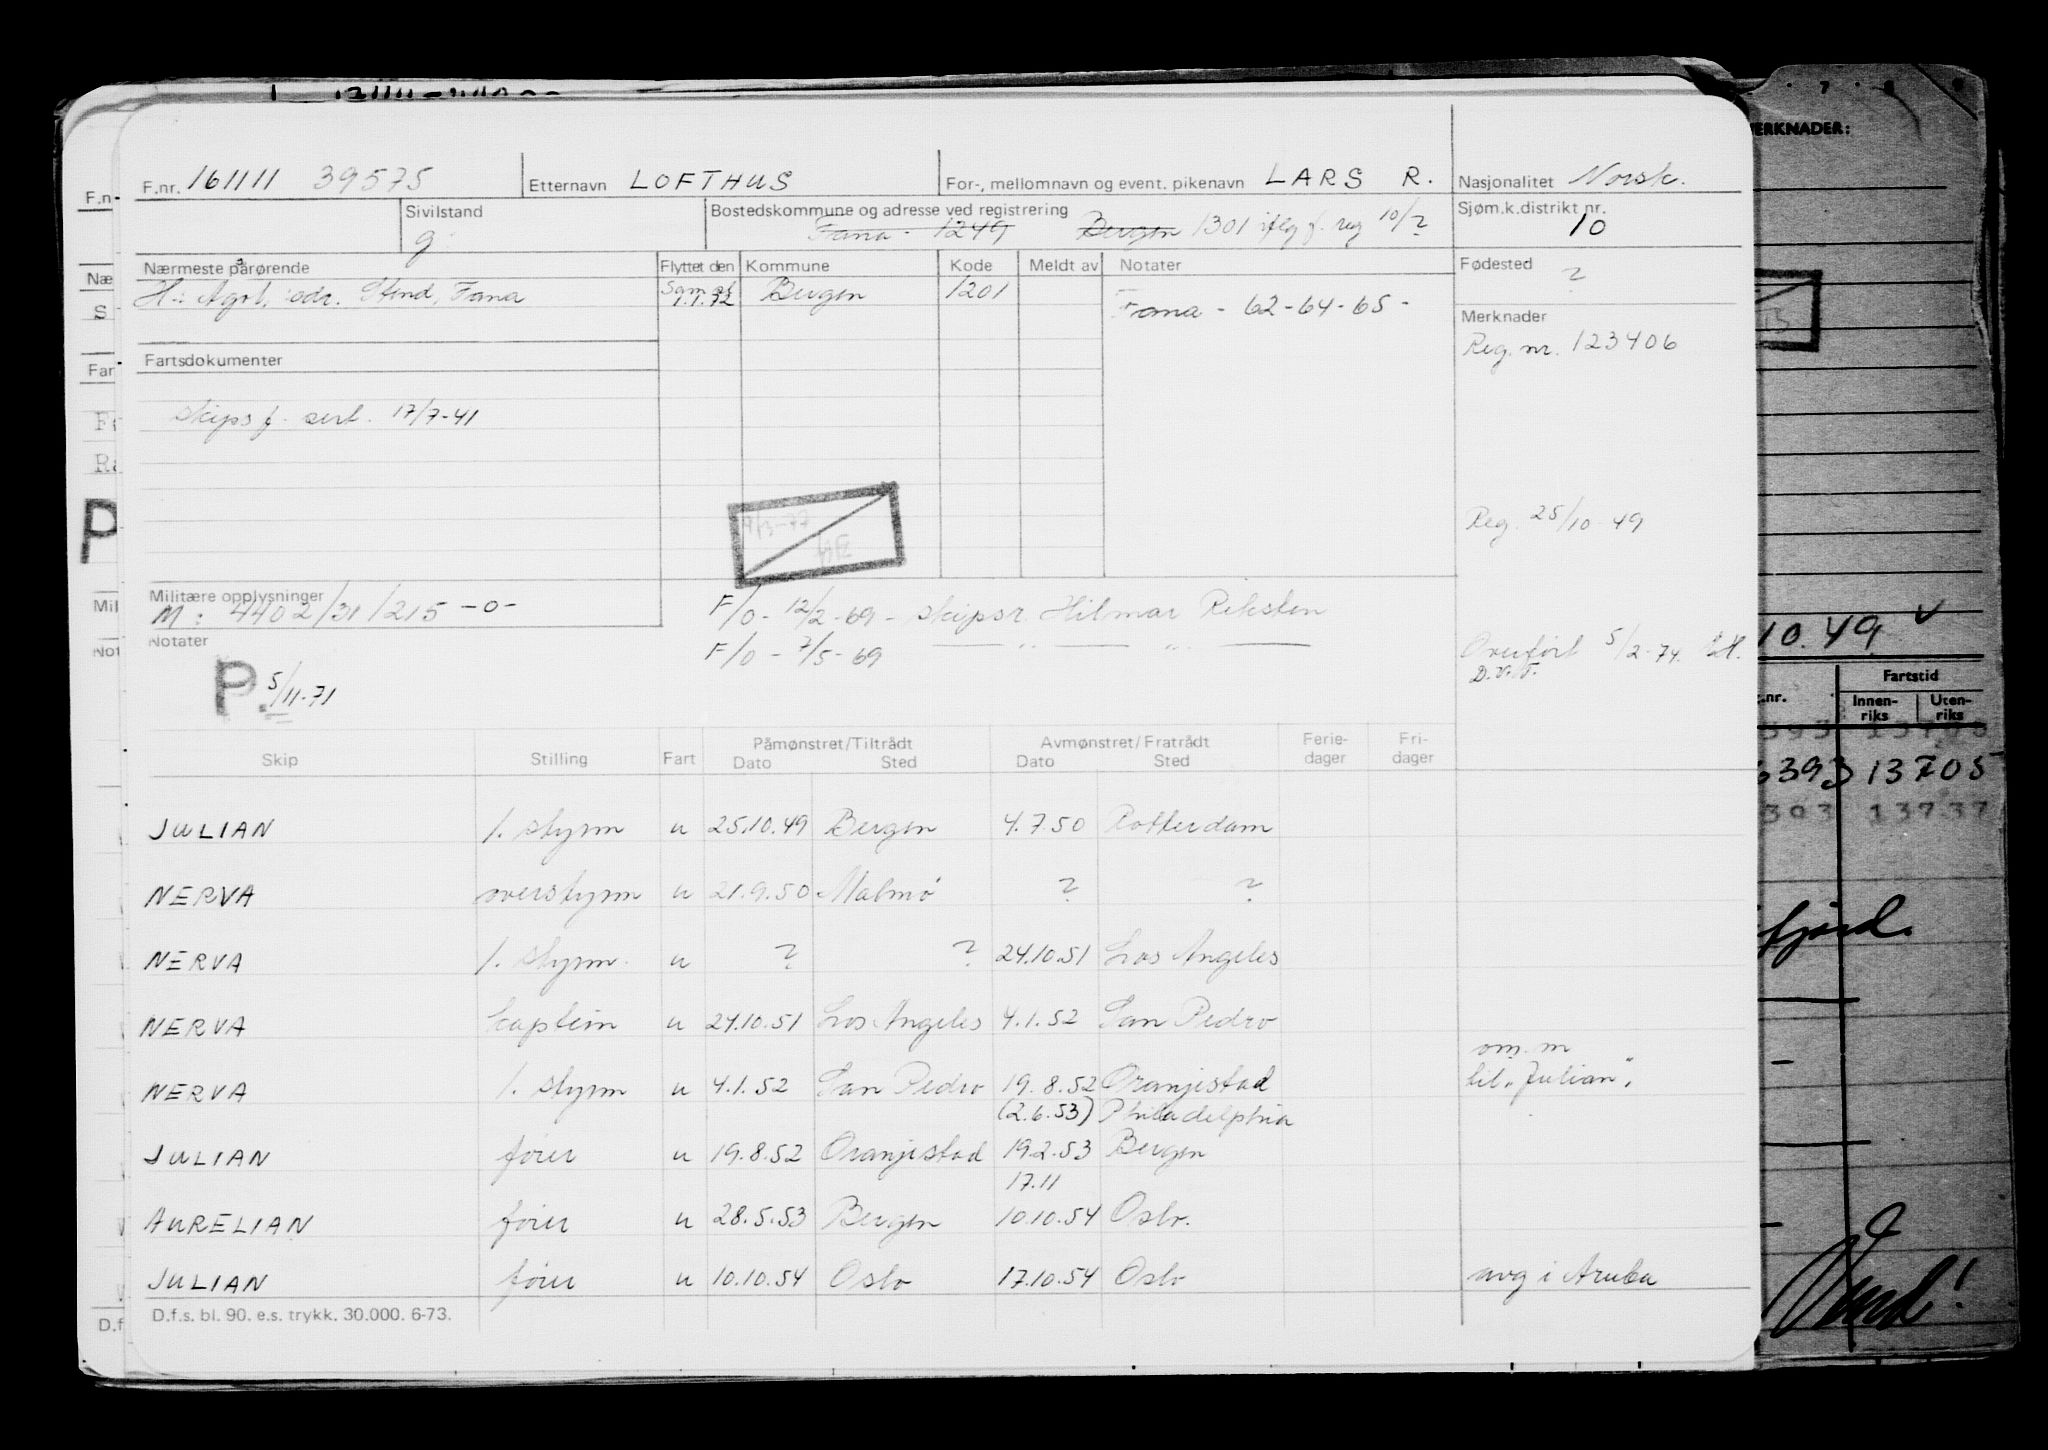 MERKNADER:
F.nr. 161111 39575 Etternavn LOFTHUS For-, mellomnavn og event. pikenavn LARS R. Nasjonalitet Norsk.
Sivilstand g Bostedskommune og adresse ved registrering Fana - 1249 Bergen 1301 iflg f. reg 10/? Sjøm.k.distrikt nr. 10
Nærmeste pårørende Flyttet den Kommune Kode Meldt av Notater Fødested ?
H: Agot, adr. Stend, Fana Sam. 1.1.72 Bergen 1201 Fana - 62-64-65-
Merknader
Reg. nr. 123406
Fartsdokumenter
skipsf. sert. 17/7-41
Reg. 25/10-49
Militære opplysninger
M: 4402/31/215 -0-
F/O - 12/2-69 - skipsr. Hilmar Reksten
F/O - 7/5-69 — „ — „ —
Notater
Overført 5/2-74.
D.V.F.
P. 5/11-71
10.49
Fartstid
Innen-riks Uten-riks
Skip Stilling Fart Påmønstret/Tiltrådt Dato Sted Avmønstret/Fratrådt Dato Sted Ferie-dager Fri-dager
6393 13705
393 13737
JULIAN 1. styrm u 25.10.49 Bergen 4.7.50 Rotterdam
NERVA overstyrm u 21.9.50 Malmö ? ?
NERVA 1. styrm. u ? ? 24.10.51 Los Angeles
NERVA kaptein u 24.10.51 Los Angeles 4.1.52 San Pedro
NERVA 1. styrm u 4.1.52 San Pedro 19.8.52 Oranjestad om. m til "Julian".
(2.6.53) Philadelphia
JULIAN fører u 19.8.52 Oranjestad 19.2.53 Bergen
17.11
AURELIAN fører u 28.5.53 Bergen 10.10.54 Oslo.
JULIAN fører u 10.10.54 Oslo 17.10.54 Oslo avg i Aruba
D.f.s. bl. 90. e.s. trykk. 30.000. 6-73.
Vend!